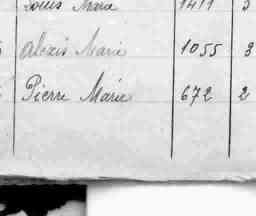 Louis Marie 1411 3
Alexis Marie 1055 3
Pierre Marie 672 2